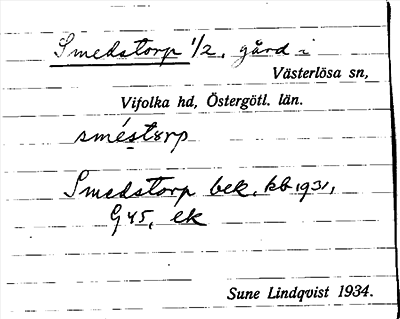 Smedstorp 1/2, gård i
Västerlösa sn,
Vifolka hd, Östergötl. län.
sméstɷrp
Smedstorp bek. kb 1931,
G 45, ek
Sune Lindqvist 1934.